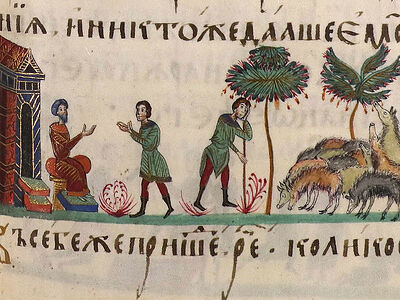 нїѧ, и никтоже дааше ем
ъ себеже прише, ре · колико